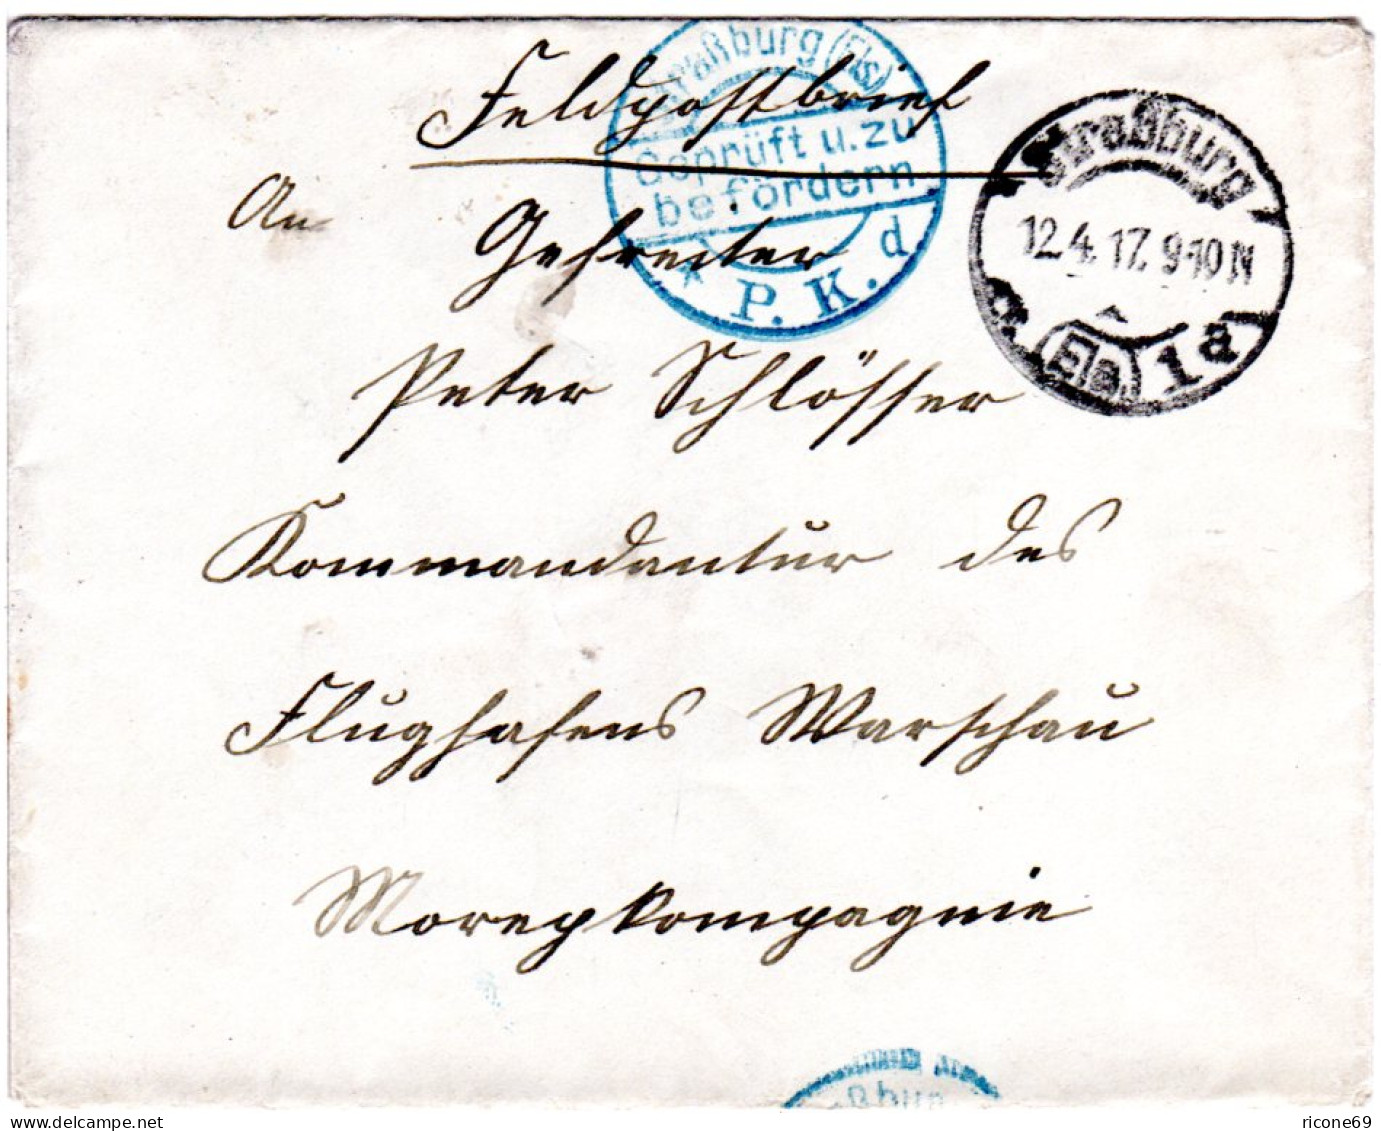 Feldpostbrief
Straßburg (Els)
Geprüft u. zu
befördern
* P. K. d
Straßburg
12.4.17. 9-10 N
(Els.) 1 d
An
Gefreiter
Peter Schlösser
Kommandantur des
Flughafens Warschau
ßbur
ricone69